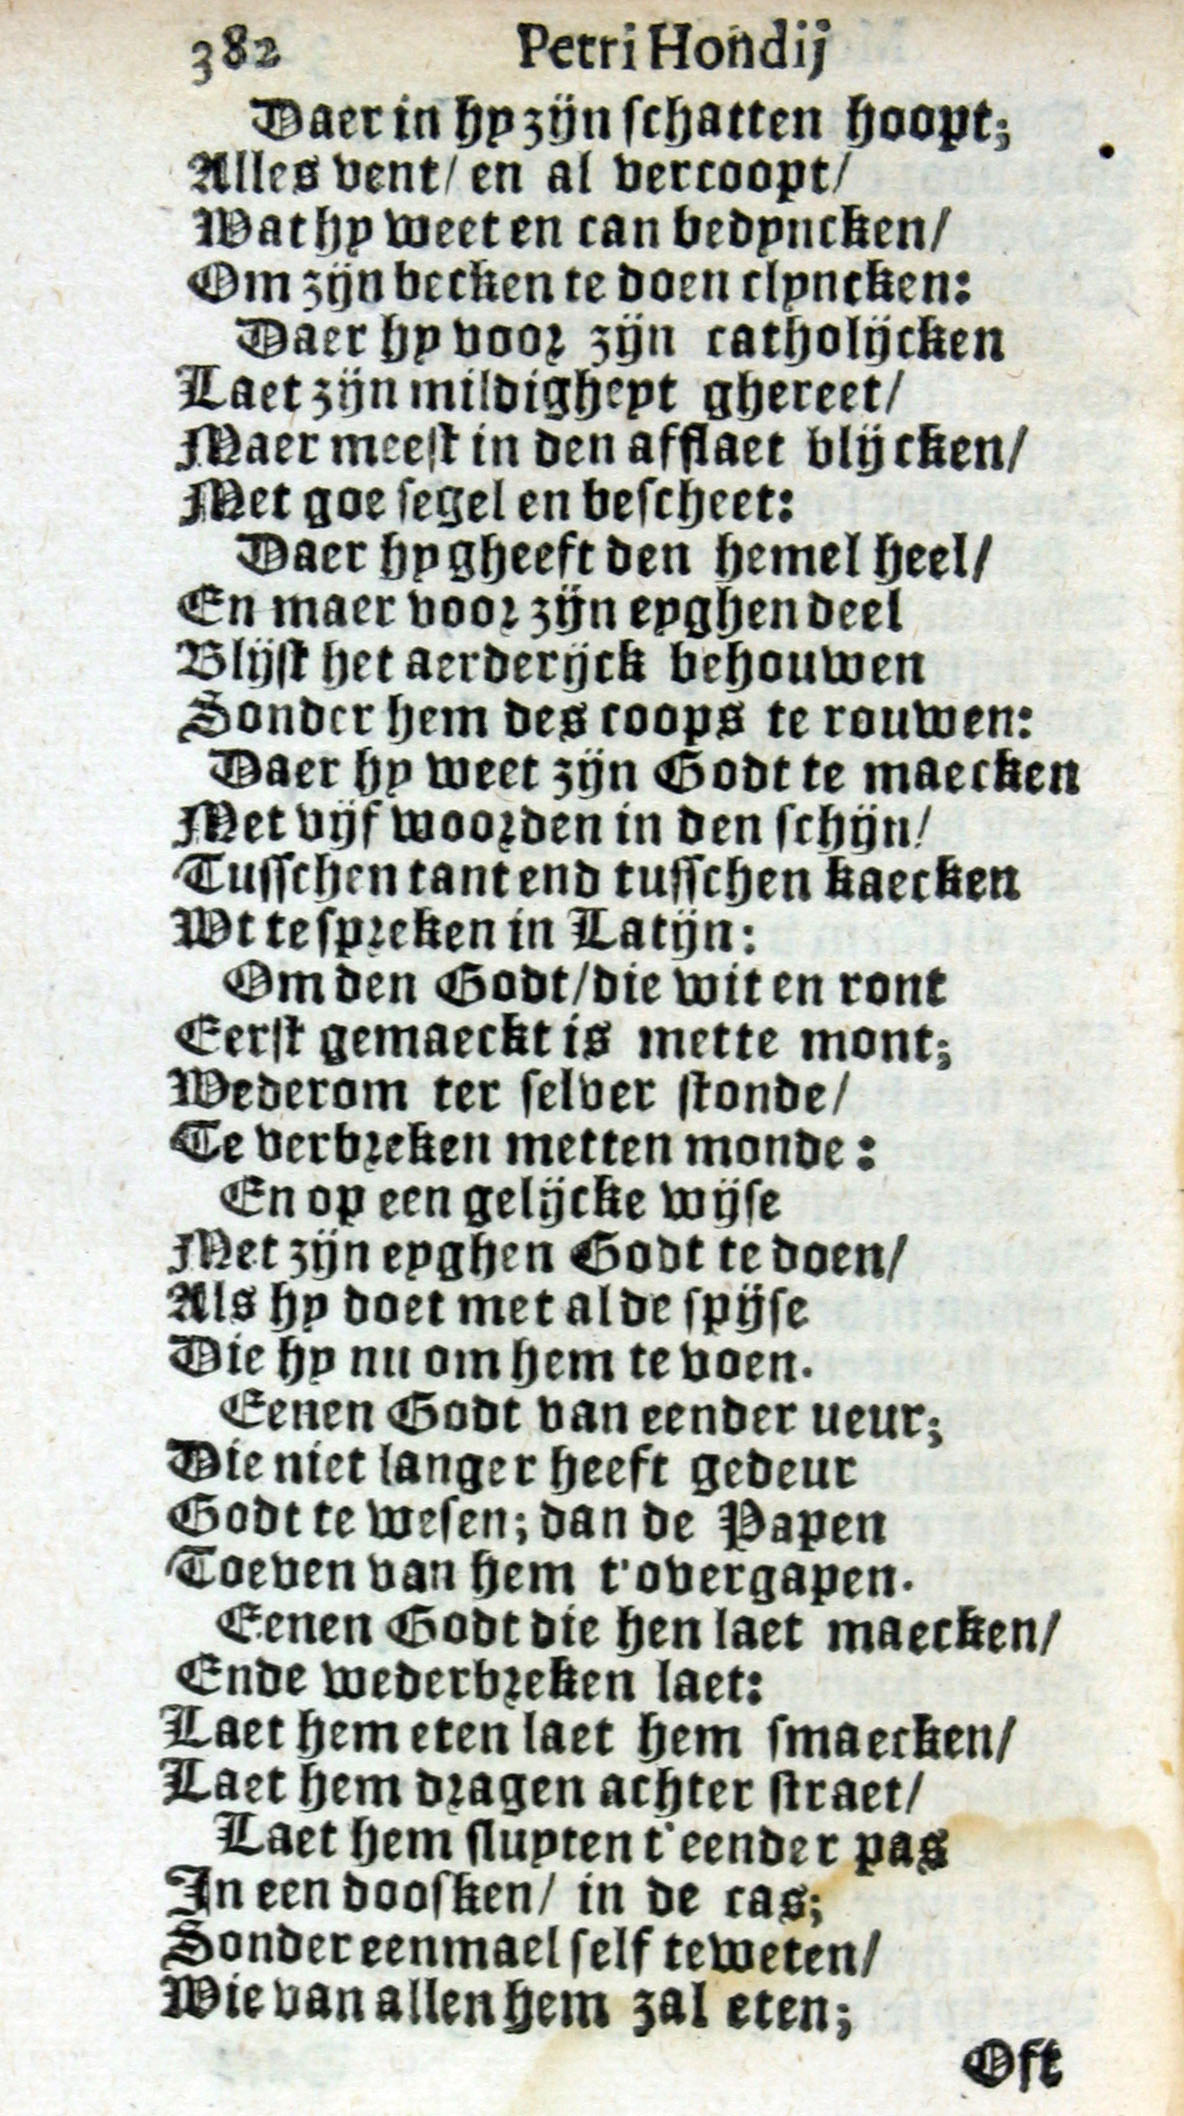 382 Petri Hondij
Daer in hy zijn schatten hoopt;
Alles vent/ en al vercoopt/
Wat hy weet en can bedyncken/
Om zijn becken te doen clyncken:
Daer hy voor zijn catholijcken
Laet zijn mildigheyt ghereet/
Maer meest in den afflaet blijcken/
Met goe segel en bescheet:
Daer hy gheeft den hemel heel/
En maer voor zijn eyghen deel
Blijft het aerderijck behouwen
Sonder hem des coops te rouwen:
Daer hy weet zijn Godt te maecken
Met vijf woorden in den schijn/
Tusschen tant end tusschen kaecken
Wt te spreken in Latijn:
Om den Godt/die wit en ront
Eerst gemaeckt is mette mont;
Wederom ter selver stonde/
Te verbreken metten monde:
En op een gelijcke wijse
Met zijn eyghen Godt te doen/
Als hy doet met al de spijse
Die hy nu om hem te voen.
Eenen Godt van eender ueur;
Die niet langer heeft gedeur
Godt te wesen; dan de Papen
Toeven van hem t'overgapen.
Eenen Godt die hen laet maecken/
Ende wederbreken laet:
Laet hem eten laet hem smaecken/
Laet hem dragen achter straet/
Laet hem sluyten t'eender pas
In een doosken/ in de cas;
Sonder eenmael self te weten/
Wie van allen hem zal eten;
Oft